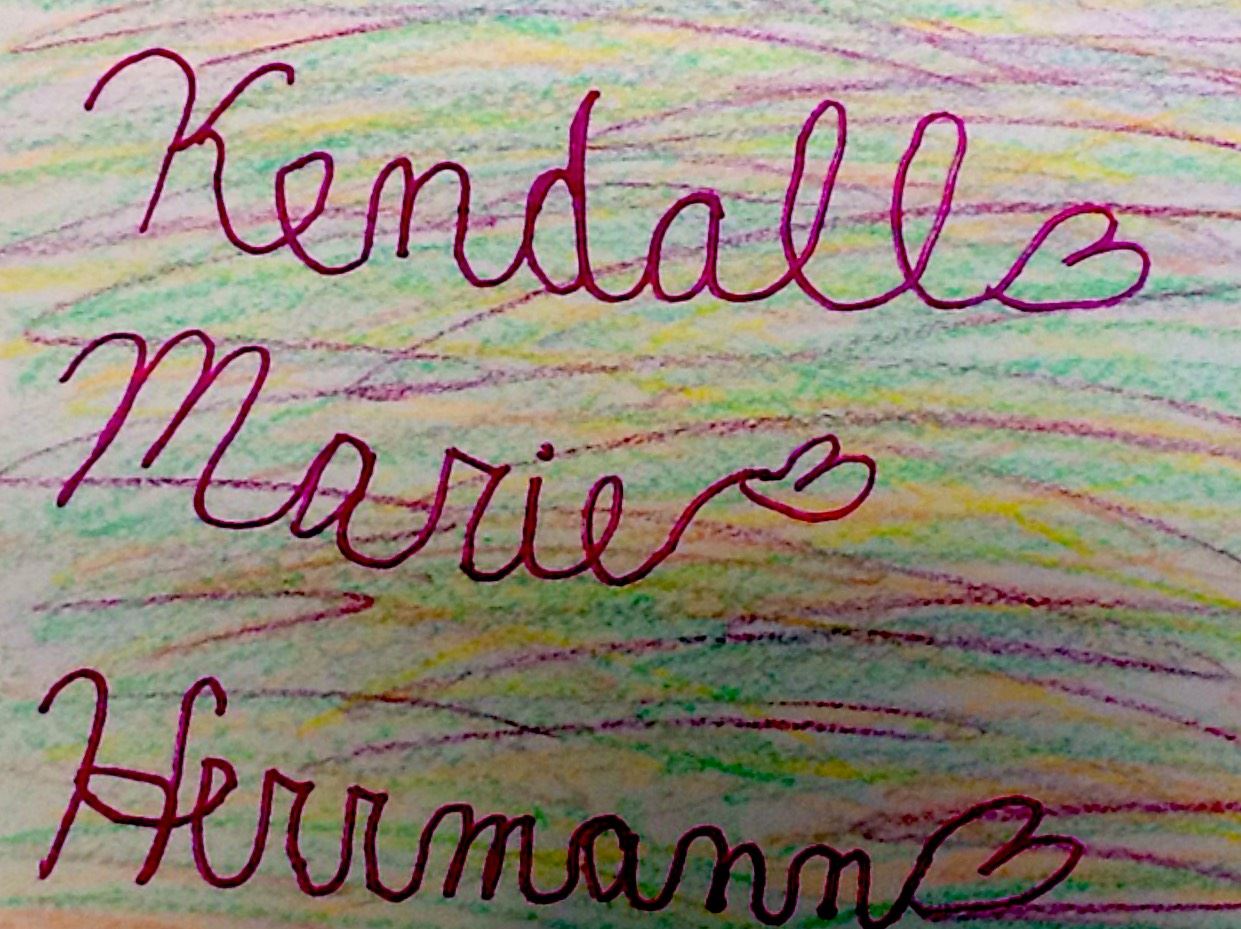 Kendall
Marie
Herrmann